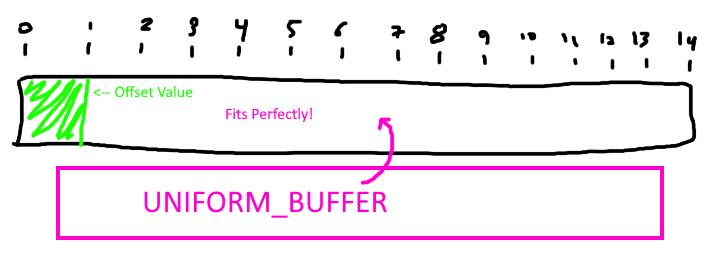 0 1 2 3 4 5 6 7 8 9 10 11 12 13 14
<-- Offset Value
Fits Perfectly!
UNIFORM_BUFFER